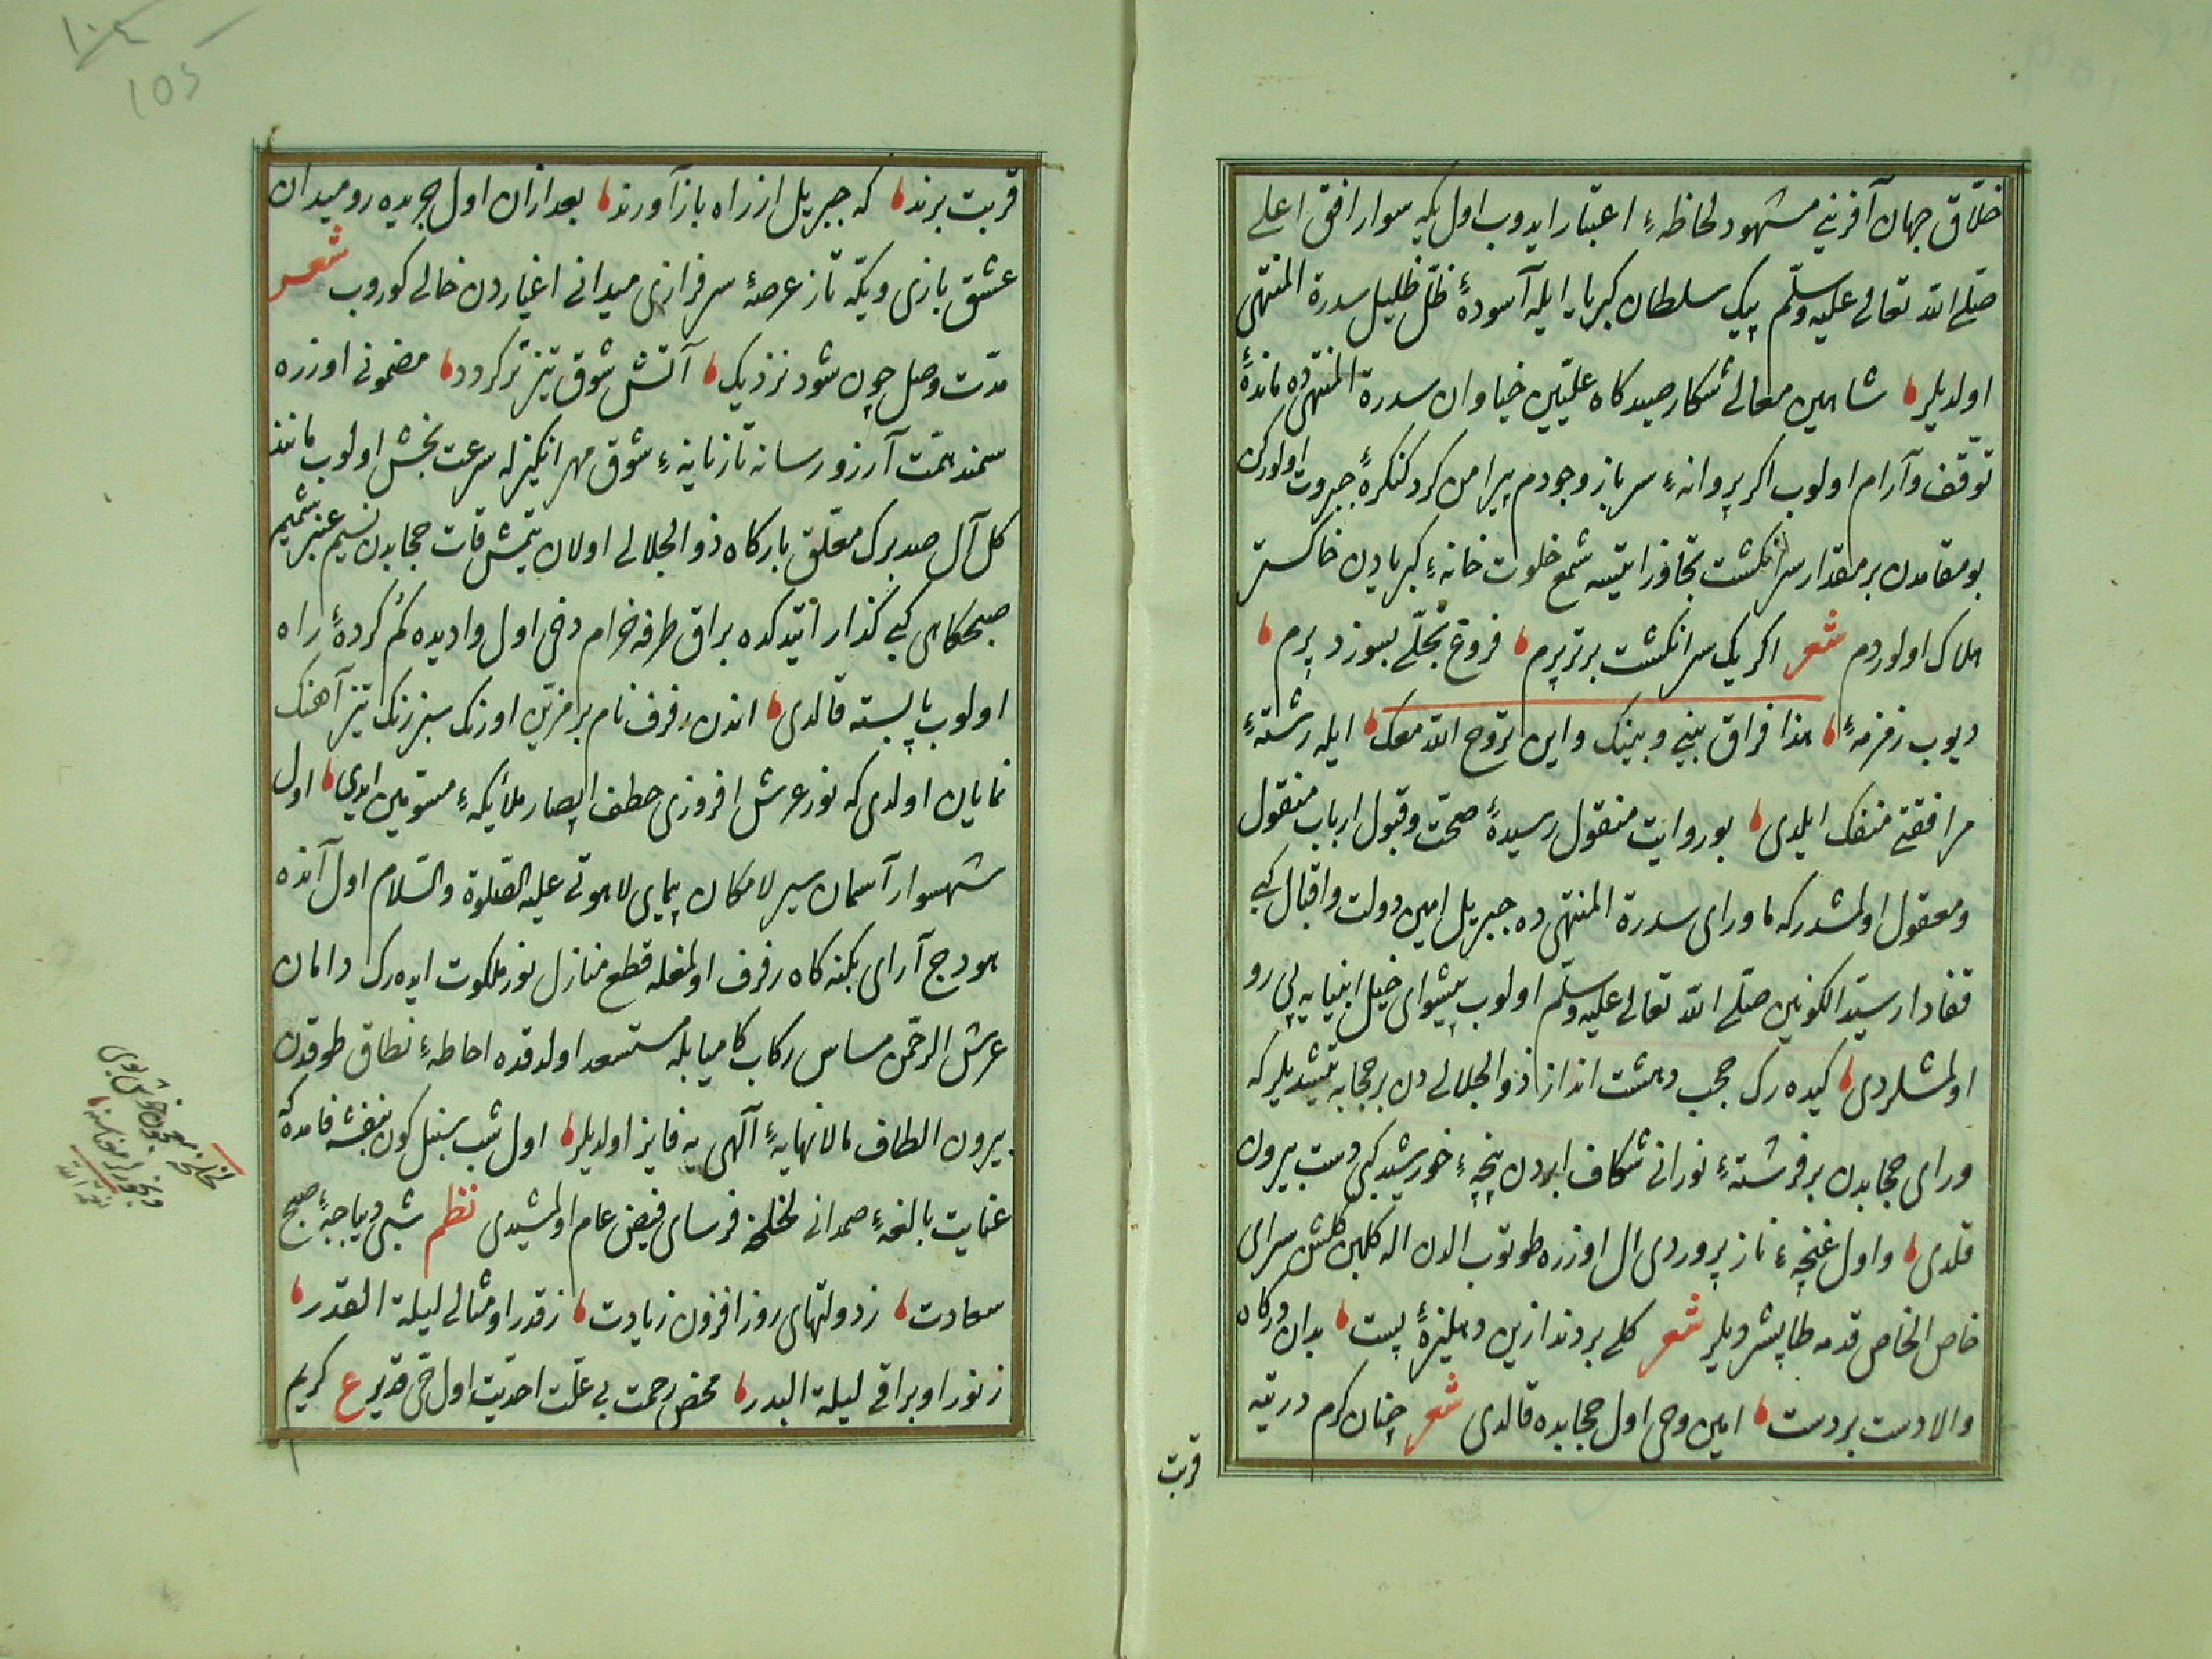 خلّاق جهان آفرینی مشهود لحاظهٔ اعتبار ایدوب اول یکه سوار افق اعلی
صلّی الله تعالی علیه وسلّم پیک سلطان کبریا ایله آسودهٔ ظلّ ظلیل سدرة المنتهی
اولدیلر شاهین معالی شکار صیدکاه علیّین خیاوان سدرة المنتهی ده ماندهٔ
توقّف وآرام اولوب اکر پروانهٔ سرباز وجودم پیرامن کرد کنکرهٔ جبروت اولورکن
بو مقامدن بر مقدار سرانکشت تجاوز ایتسه شمع خلوت خانهٔ کبریادن خاکستر
هلاک اولوردم شعر اکر یک سرانکشت برتر پرم فروغ تجلّی بسوزد پرم
دیوب زمزمهٔ هذا فراق بینی وبینک واین تروح الله معک ایله رشتهٔ
مرافقتی منفک ایلدی بو روایت منقول رسیدهٔ صحّت وقبول ارباب منقول
ومعقول اولمشدرکه ماورای سدرة المنتهی ده جبریل امین دولت واقبال کبی
قفادار سیّد الکونین صلّی الله تعالی علیه وسلّم اولوب پیشوای خیل انبیایه پی رو
اولمشلردی کیده رک حجب دهشت انداز ذو الجلالی دن بر حجابه یتیشدیلرکه
ورای حجابدن بر فرشتهٔ نورانی شکاف ابردن پنچهٔ خورشید کبی دست بیرون
قلدی واول غنچهٔ ناز پروردی ال اوزره طوتوب الدن اله کلبن کلشن سرای
خاص الخاص قدمه طاپشردیلر شعر کلی بردند ازین دهلیزهٔ پست بدان درکاه
والا دست بردست امین وحی اول حجابده قالدی شعر چنان کرم در تیه
قربت
قربت براند که جبریل ازراه باز آورند بعد ازان اول جریده رو میدان
عشق بازی ویکّه تاز عرصهٔ سرفرازی میدانی اغیاردن خالی کوروب شعر
مدّت وصل چون شود نزدیک آتش شوق تیزتر کردد مضمونی اوزره
سمند همّت آرزو رسانه تازیانهٔ شوق مهر انکیزله سرعت بخش اولوب مانند
کل آل صد برک معلّق بارکاه ذو الجلالی اولان یتمش قات حجابدن نسیم عنبر شمیم
صبحکاهی کبی کذار ایتدکده براق طرفه خرام دخی اول وادیده کم کردهٔ راه
اولوب پا بسته قالدی اندن رفرف نام بر مزیّن اورنک سبز رنک تیز آهنک
نمایان اولدی که نور عرش افروزی خطف ابصار ملائکهٔ مستومین ایدی اول
شهسوار آسمان سیر لامکان پیمای لاهوتی علیه الصلوة والسلام اول آنده
هودج آرای تکنه کاه رفرف اولمغله قطع منازل نور ملکوت ایده رک دامان
عرش الرحمن مساس رکاب کامیابله مستسعد اولدقده احاطهٔ نطاق طوقدن
بیرون الطاف مالانهایهٔ آلهی یه فایز اولدیلر اول شب سنبل کون بنفشه فامده که
عنایت بالغهٔ صمدانی لخلخه فرسای فیض عام اولمشیدی نظم شبی دیباجهٔ صبح
سعادت زدولتهای روز افزون زیادت زقدر او مثالی لیلة القدر
زنور او براقی لیلة البدر محض رحمت بی علّت احدیّت اول حیّ قدیر ع کریم
لخلخه معجون خوش بوی
١٠٤
105